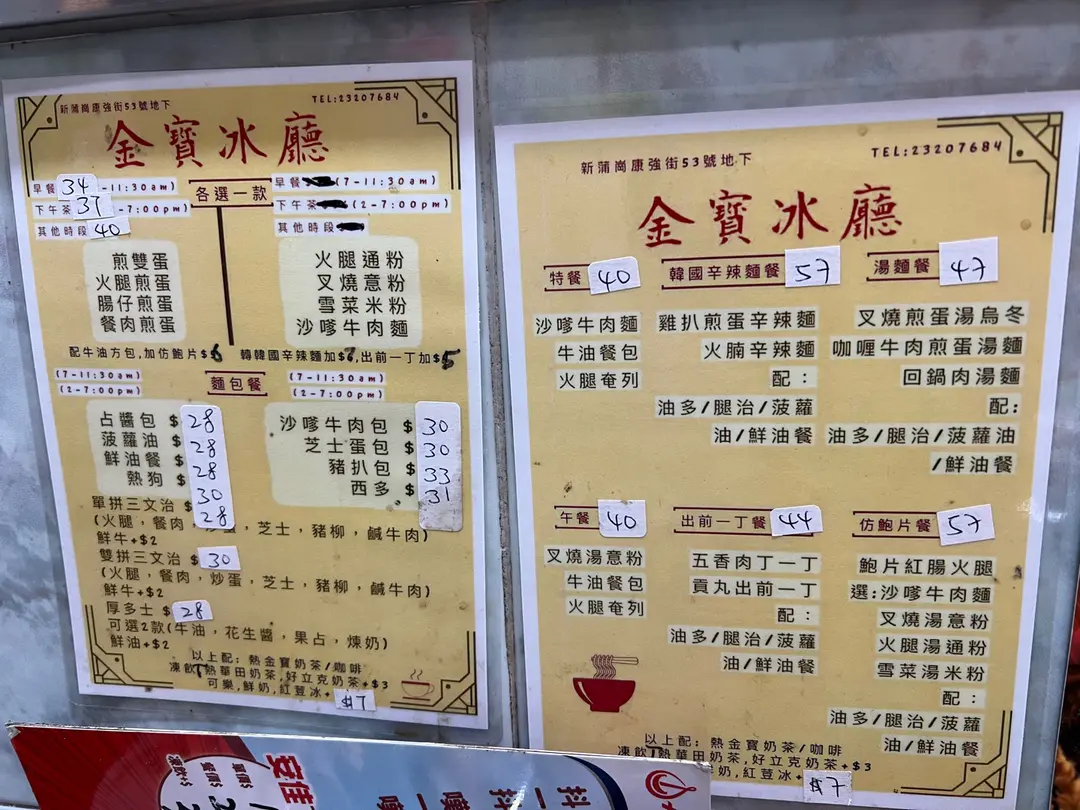 新蒲崗康強街53號地下 TEL:23207684
金寶冰廳
早餐 34 -11:30am)
下午茶 37 -7:00pm)
其他時段 40
各選一款
早餐 (7-11:30am)
下午茶 (2-7:00pm)
其他時段
煎雙蛋
火腿煎蛋
腸仔煎蛋
餐肉煎蛋
火腿通粉
叉燒意粉
雪菜米粉
沙嗲牛肉麵
配牛油方包,加仿鮑片$6 轉韓國辛辣麵加$7,出前一丁加$5
(7-11:30am)
(2-7:00pm)
麵包餐
(7-11:30am)
(2-7:00pm)
占醬包 $ 28
菠蘿油 $ 28
鮮油餐 $ 28
熱狗 $ 30
沙嗲牛肉包 $ 30
芝士蛋包 $ 30
豬扒包 $ 33
西多 $ 31
單拼三文治 $ 28
(火腿,餐肉, ,芝士,豬柳,鹹牛肉)
鮮牛+$2
雙拼三文治 $ 30
(火腿,餐肉,炒蛋,芝士,豬柳,鹹牛肉)
鮮牛+$2
厚多士 $ 28
可選2款(牛油,花生醬,果占,煉奶)
鮮油+$2
以上配:熱金寶奶茶/咖啡
凍飲 熱華田奶茶,好立克奶茶+$3
可樂,鮮奶,紅荳冰+ $7
新蒲崗康強街53號地下 TEL:23207684
金寶冰廳
特餐 40
沙嗲牛肉麵
牛油餐包
火腿奄列
韓國辛辣麵餐 57
雞扒煎蛋辛辣麵
火腩辛辣麵
配:
油多/腿治/菠蘿
油/鮮油餐
湯麵餐 47
叉燒煎蛋湯烏冬
咖喱牛肉煎蛋湯麵
回鍋肉湯麵
配:
油多/腿治/菠蘿油
/鮮油餐
午餐 40
叉燒湯意粉
牛油餐包
火腿奄列
出前一丁餐 44
五香肉丁一丁
貢丸出前一丁
配:
油多/腿治/菠蘿
油/鮮油餐
仿鮑片餐 57
鮑片紅腸火腿
選:沙嗲牛肉麵
叉燒湯意粉
火腿湯通粉
雪菜湯米粉
配:
油多/腿治/菠蘿
油/鮮油餐
以上配:熱金寶奶茶/咖啡
凍飲 熱華田奶茶,好立克奶茶+$3
奶,紅荳冰+ $7